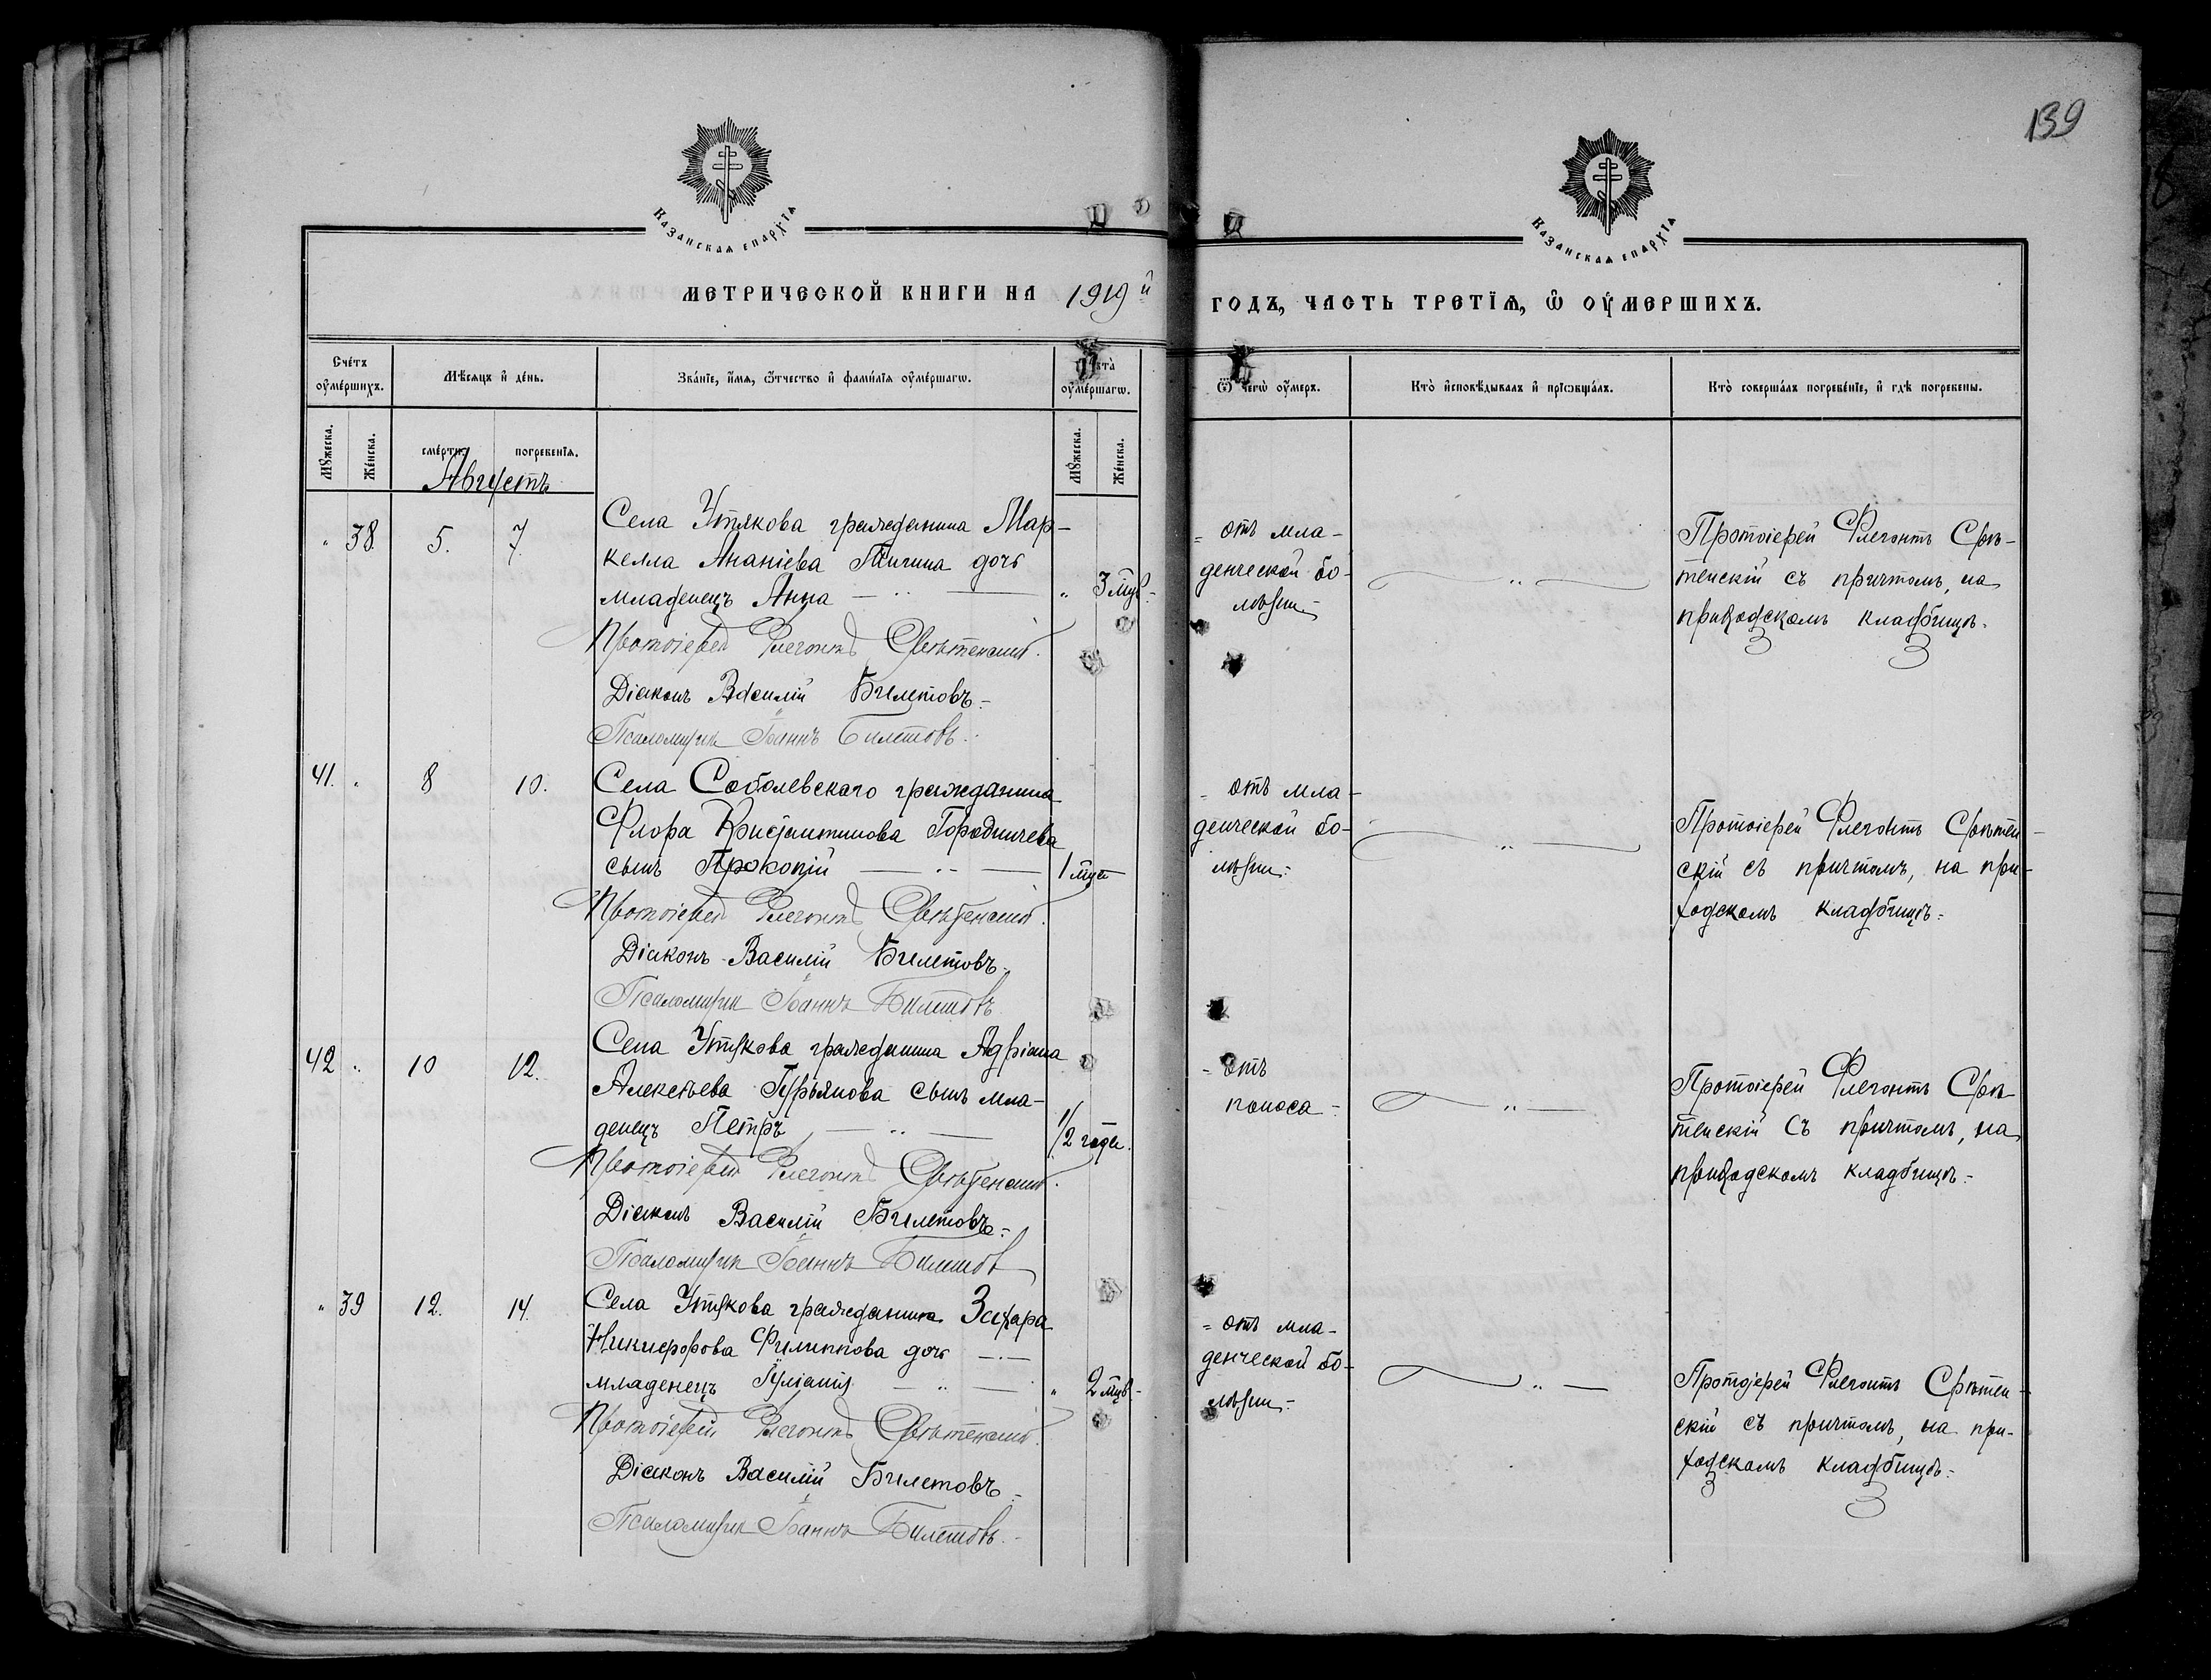 139
Казанская епархїѧ
Казанская епархїѧ
МЕТРИЧЕСКОЙ КНИГИ НА 1919й
ГОДЪ, ЧАСТЬ ТРЕТЇѦ, Ѡ ОУМЕРШИХЪ.
Счетъ оумершихъ.
Мѣсяцъ и день.
Званїе, имя, отчество и фамилїя оумершагѡ.
Лѣта оумершагѡ.
Ѿ чегѡ оумеръ.
Кто исповѣдывалъ и прїѡбщалъ.
Кто совершалъ погребенїе, и гдѣ погребены.
Мꙋжеска.
Женска.
смерти.
погребенїя.
Мꙋжеска.
Женска.
Августъ
" 38. 5. 7.
Села Утякова гражданина Мар-
келла Ананіева дочь
младенецъ Анна — " — " 3 мцв.
Протоіерей Флегонтъ Срѣтенскій.
Діаконъ Василій Билетовъ.
Псаломщик Іоаннъ Билетовъ.
= отъ мла-
денческой бо-
лѣзни.
— " —
Протоіерей Флегонтъ Срѣ-
тенскій съ причтомъ, на
приходскомъ кладбищѣ.
41. " 8 10.
Села Соболевскаго гражданина
Флора Константинова Городничева
сынъ Прокопій — " — 1 мцъ
Протоіерей Флегонтъ Срѣтенскій.
Діаконъ Василій Билетовъ.
Псаломщик Іоаннъ Билетовъ
= отъ мла-
денческой бо-
лѣзни.
— " —
Протоіерей Флегонтъ Срѣтен-
скій съ причтомъ, на при-
ходскомъ кладбищѣ.
42 " 10 12.
Села Утякова гражданина Адріана
Алексѣева сынъ мла-
денецъ Петръ — " — 1/2 года.
Протоіерей Флегонтъ Срѣтенскій.
Діаконъ Василій Билетовъ.
Псаломщик Іоаннъ Билетов
= отъ
поноса
— " —
Протоіерей Флегонтъ Срѣ-
тенскій съ причтомъ, на
приходскомъ кладбищѣ.
" 39 12. 14.
Села Утякова гражданина Захара
Никифорова Филиппова дочь —
младенецъ Іуліанія — " — " 2 мцв.
Протоіерей Флегонтъ Срѣтенскій.
Діаконъ Василій Билетовъ.
Псаломщик Іоаннъ Билетовъ.
= отъ мла-
денческой бо-
лѣзни.
— " —
Протоіерей Флегонтъ Срѣтен-
скій съ причтомъ, на при-
ходскомъ кладбищѣ.